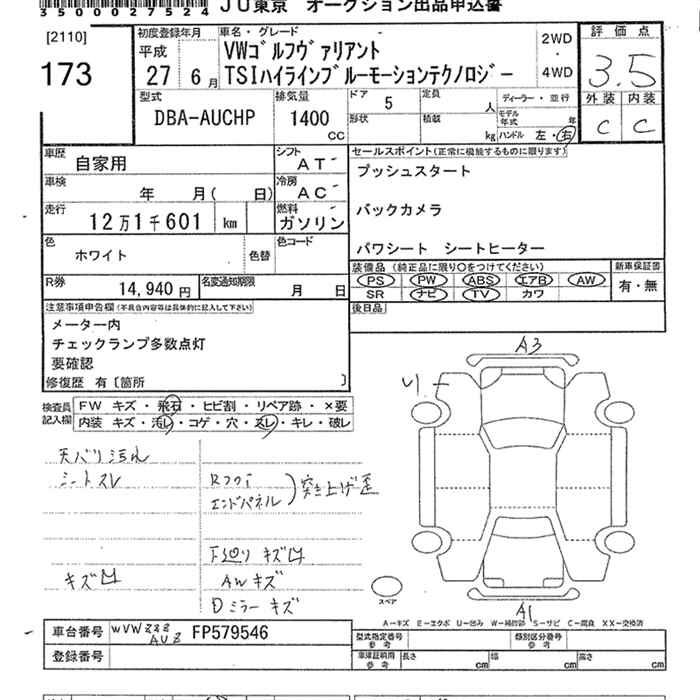 3500027524
JU東京 オークション出品申込書
[2110]
173
初度登録年月
平成
27 6月
車名・グレード
VWゴルフヴァリアント
TSIハイラインブルーモーションテクノロジー
2WD
・
4WD
評価点
3.5
外装 内装
C C
型式
DBA-AUCHP
排気量
1400
CC
ドア 5
形状
定員 人
積載 kg
ディーラー・並行
モデル年式 年
ハンドル 左・右
車歴
自家用
シフト
AT
車検
年 月( 日)
冷房
AC
走行
12万1千601 km
燃料
ガソリン
色
ホワイト
色替
色コード
R券
14,940円
名変通知期限
月 日
セールスポイント(正常に機能するものに限ります)
プッシュスタート
バックカメラ
パワシート シートヒーター
装備品(純正品に限り○をつけてください)
PS PW ABS エアB AW
SR ナビ TV カワ
新車保証書
有・無
後日品
注意事項申告欄(不具合内容等は具体的に記入して下さい)
メーター内
チェックランプ多数点灯
要確認
修復歴 有〔箇所 〕
検査員
記入欄
FW キズ・飛石・ヒビ割・リペア跡・×要
内装 キズ・汚レ・コゲ・穴・スレ・キレ・破レ
天バリ汚れ
シートスレ
Rフロア
エンドパネル
突き上げ歪
下廻りキズ凹
キズ凹
AWキズ
Dミラーキズ
A3
リ
A1
スペア
A=キズ E=エクボ U=凹み W=補修跡 S=サビ C=腐食 XX=交換済
車台番号
WVWZZZ
AUZ
FP579546
登録番号
型式指定番号
参考
類別区分番号
参考
車庫証明用
参考
長さ cm
幅 cm
高さ cm